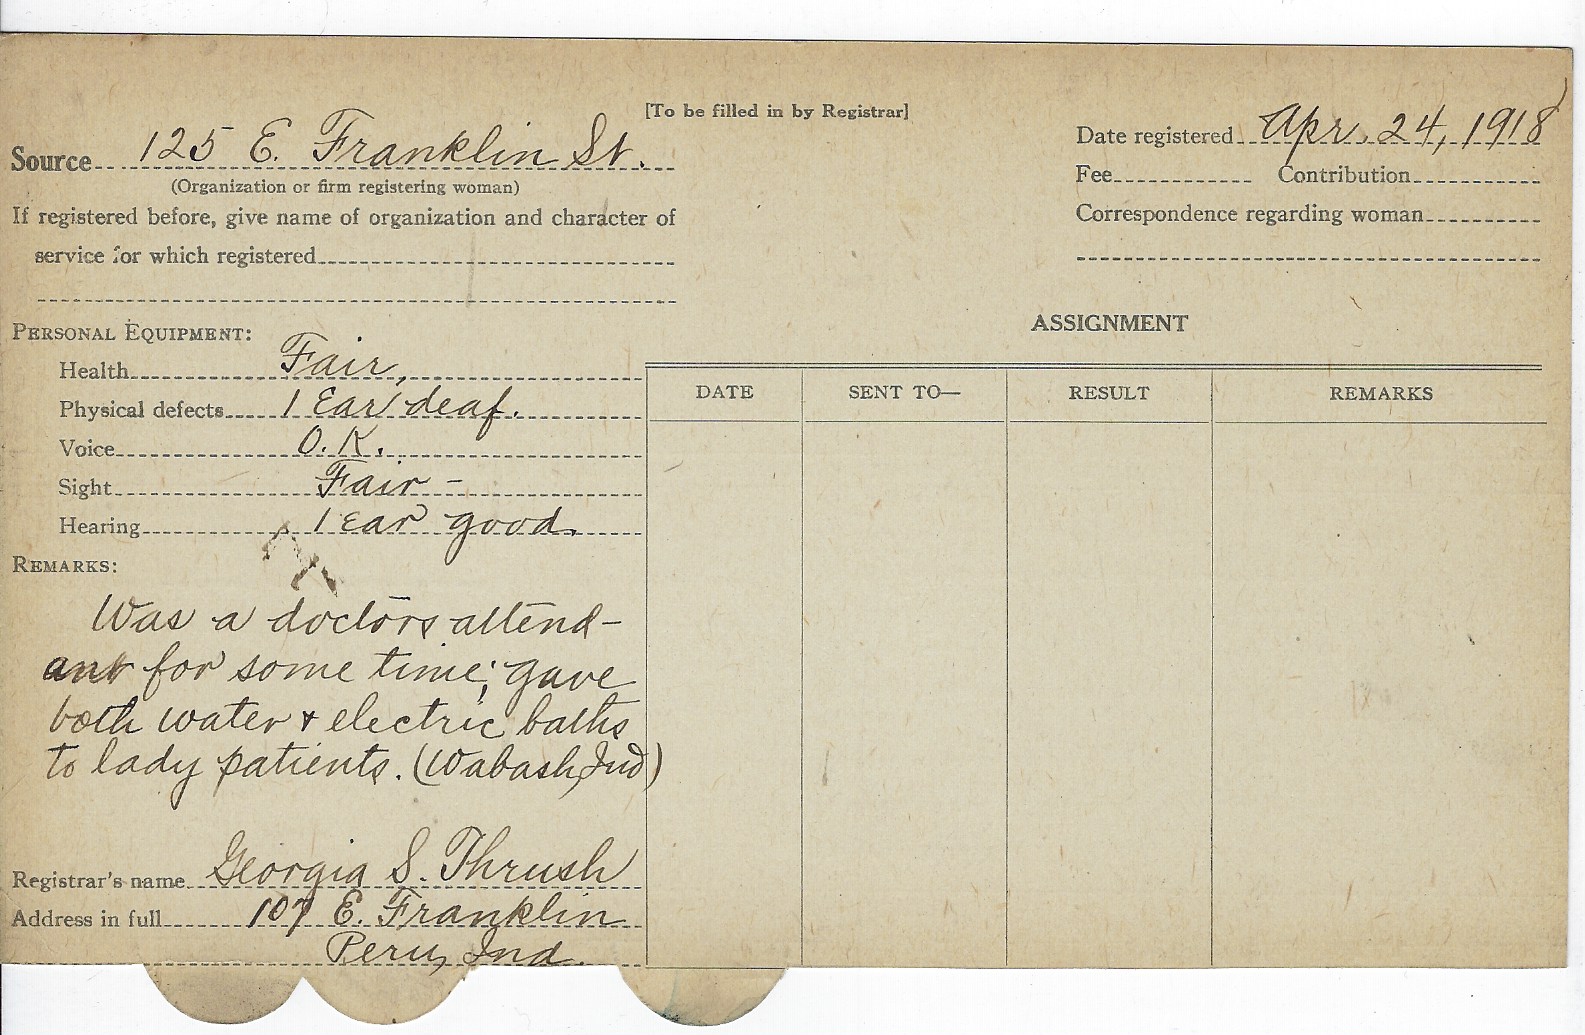 [To be filled in by Registrar]
Source 125 E. Franklin St.
(Organization or firm registering woman)
If registered before, give name of organization and character of
service for which registered
Date registered Apr. 24, 1918
Fee Contribution
Correspondence regarding woman
PERSONAL EQUIPMENT:
Health Fair,
Physical defects 1 Ear deaf.
Voice O.K.
Sight Fair -
Hearing 1 ear good.
REMARKS:
Was a doctors attend-
ant for some time; gave
both water + electric baths
to lady patients. (Wabash, Ind)
Registrar's name Georgia S. Thrush
Address in full 107 E. Franklin
Peru, Ind.
ASSIGNMENT
DATE SENT TO— RESULT REMARKS